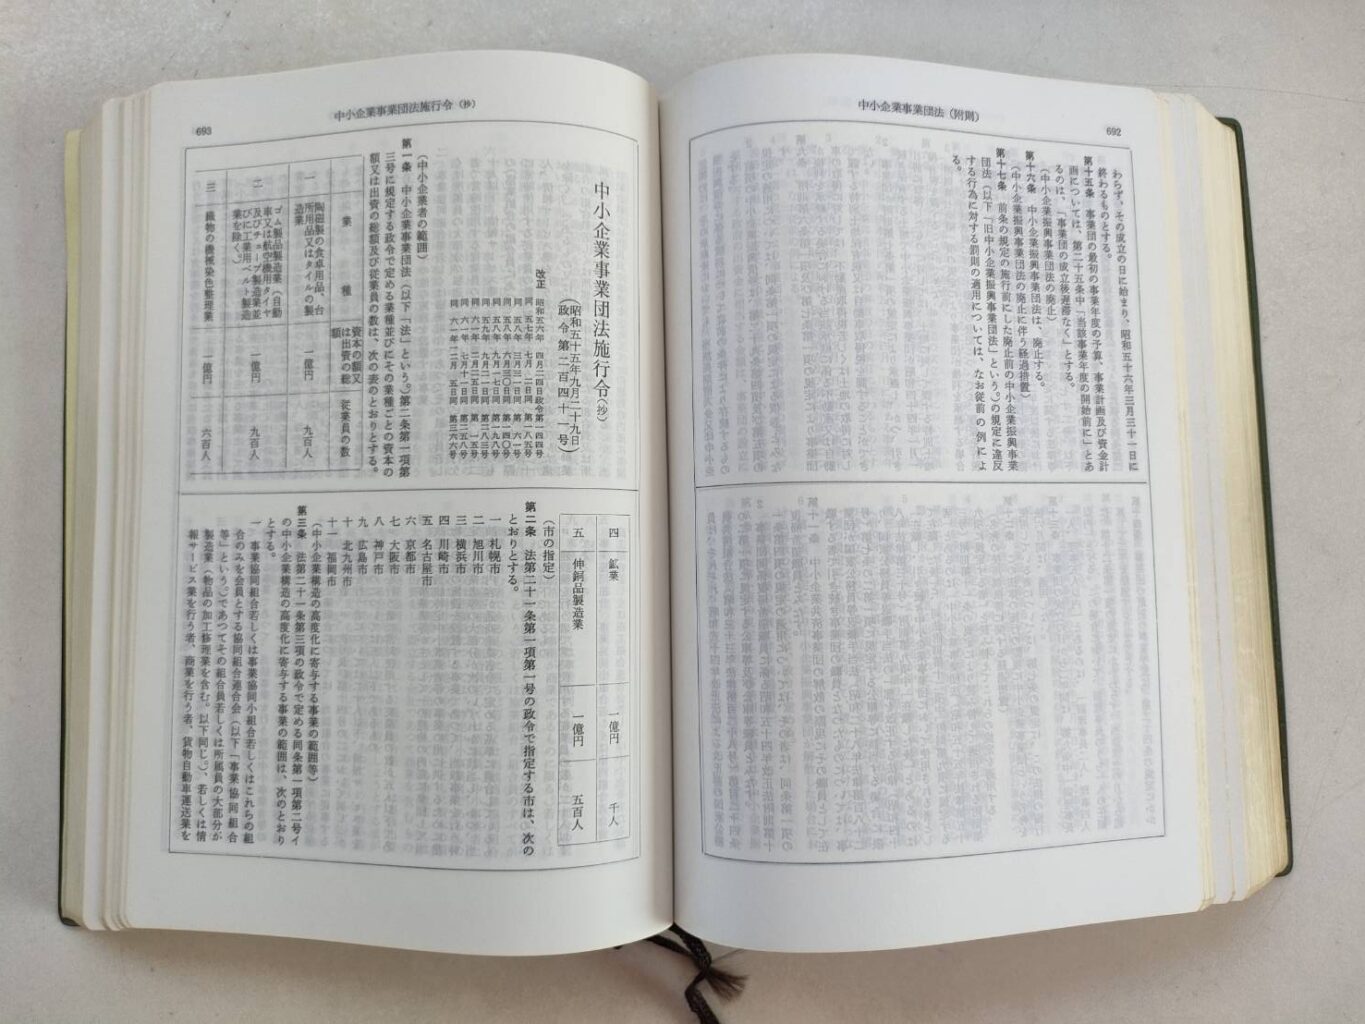 692
中小企業事業団法（附則）
わらず、その成立の日に始まり、昭和五十六年三月三十一日に
終わるものとする。
第十五条　事業団の最初の事業年度の予算、事業計画及び資金計
画については、第二十五条中「当該事業年度の開始前に」とあ
るのは、「事業団の成立後遅滞なく」とする。
（中小企業振興事業団法の廃止）
第十六条　中小企業振興事業団法は、廃止する。
（中小企業振興事業団法の廃止に伴う経過措置）
第十七条　前条の規定の施行前にした廃止前の中小企業振興事業
団法（以下「旧中小企業振興事業団法」という。）の規定に違反
する行為に対する罰則の適用については、なお従前の例によ
る。
中小企業事業団法施行令（抄）
693
中小企業事業団法施行令（抄）
（昭和五十五年九月二十九日
政令第二百四十一号）
改正　昭和五六年　四月二四日政令第一四四号
同　五七年　七月　二日同　第一八五号
同　五八年　三月三一日同　第　六一号
同　五八年　六月三〇日同　第一四〇号
同　五八年　九月一七日同　第一九八号
同　五九年　九月二一日同　第二八三号
同　六一年　二月二五日同　第　一五号
同　六一年　七月一一日同　第二五八号
同　六一年一二月　五日同　第三六六号
（中小企業者の範囲）
第一条　中小企業事業団法（以下「法」という。）第二条第一項第
三号に規定する政令で定める業種並びにその業種ごとの資本の
額又は出資の総額及び従業員の数は、次の表のとおりとする。
業　種
資本の額又
は出資の総
額
従業員の数
一
陶磁製の食卓用品、台
所用品又はタイルの製
造業
一億円
九百人
二
ゴム製品製造業（自動
車又は航空機用タイヤ
及びチューブ製造業並
びに工業用ベルト製造
業を除く。）
一億円
九百人
三
織物の機械染色整理業
一億円
六百人
四
鉱業
一億円
千人
五
伸銅品製造業
一億円
五百人
（市の指定）
第二条　法第二十一条第一項第一号の政令で指定する市は、次の
とおりとする。
一　札幌市
二　旭川市
三　横浜市
四　川崎市
五　名古屋市
六　京都市
七　大阪市
八　神戸市
九　広島市
十　北九州市
十一　福岡市
（中小企業構造の高度化に寄与する事業の範囲等）
第三条　法第二十一条第三項の政令で定める同条第一項第二号イ
の中小企業構造の高度化に寄与する事業の範囲は、次のとおり
とする。
一　事業協同組合若しくは事業協同小組合若しくはこれらの組
合のみを会員とする協同組合連合会（以下「事業協同組合
等」という。）であつてその組合員若しくは所属員の大部分が
製造業（物品の加工修理業を含む。以下同じ。）、若しくは情
報サービス業を行う者、商業を行う者、貨物自動車運送業を